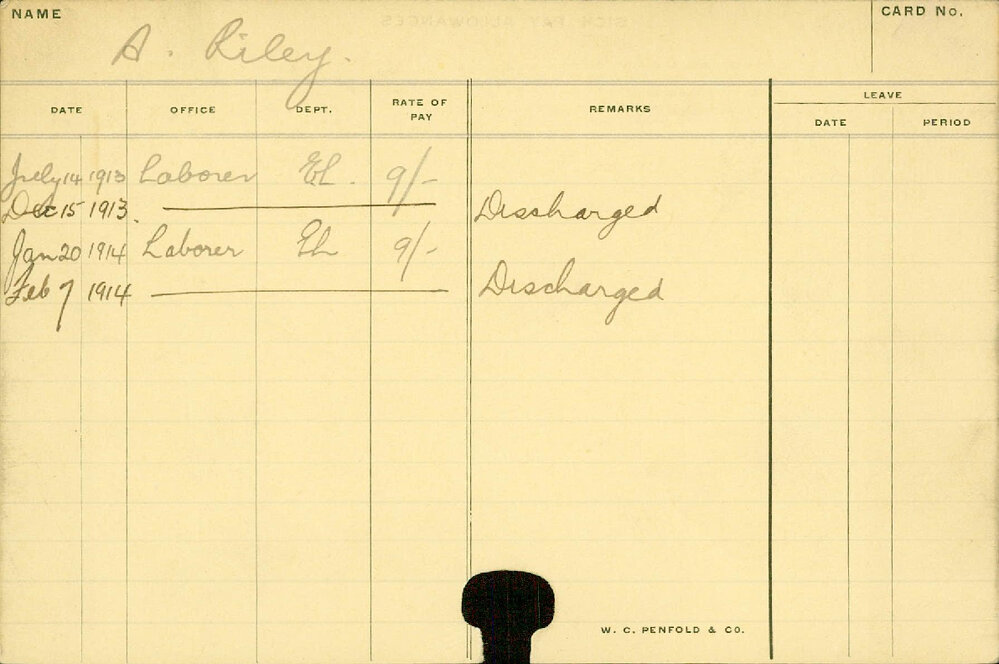 NAME
A. Riley.
CARD No.
DATE OFFICE DEPT. RATE OF PAY REMARKS LEAVE
DATE PERIOD
July 14 1913 Laborer EL. 9/-
Dec 15 1913. Discharged
Jan 20 1914 Laborer EL 9/-
Feb 7 1914 Discharged
W. C. PENFOLD & CO.